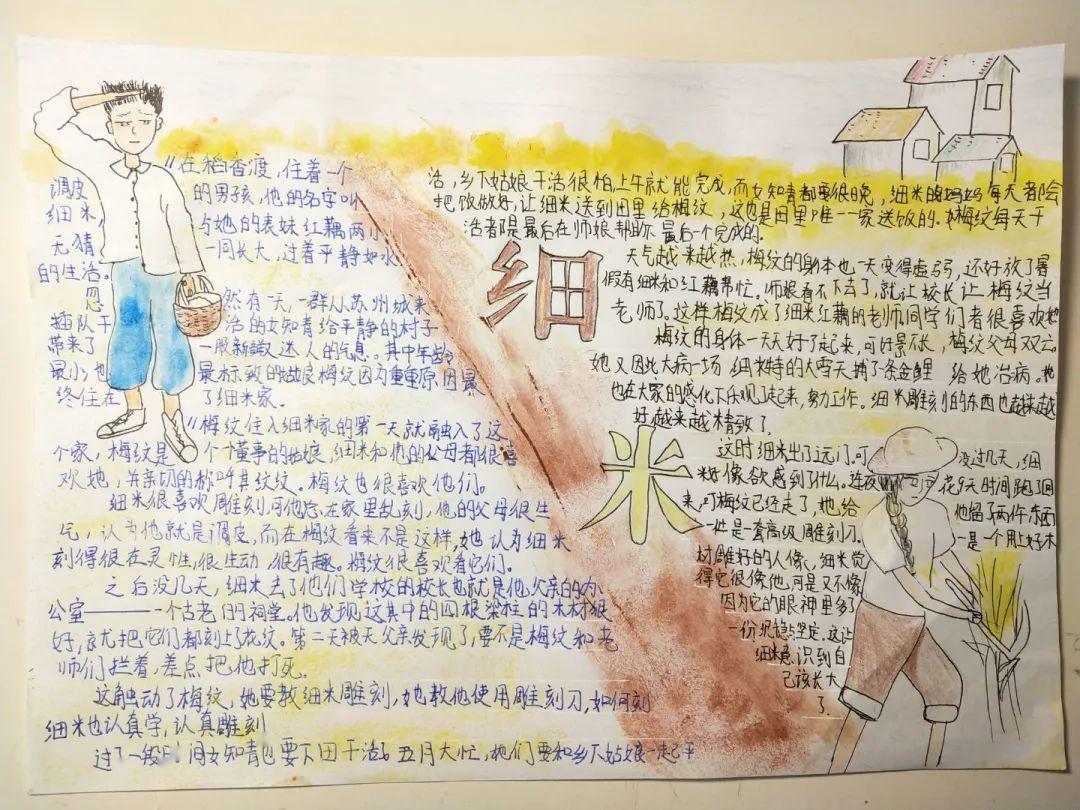 在稻香渡，住着一个
调皮的男孩，他的名字叫
细米，与她的表妹红藕两小
无猜一同长大，过着平静如水
的生活。
忽然有一天，一群从苏州城来
插队干活的女知青给平静的村子
带来了一股新颖又迷人的气息。其中年龄
最小，也最标致的姑娘梅纹因为重重原因最
终住在了细米家。
梅纹住入细米家的第一天就融入了这
个家，梅纹是个懂事的姑娘，细米和他的父母都很喜
欢她，并亲切的称呼其纹纹。梅纹也很喜欢他们。
细米很喜欢雕刻，可他总在家里乱刻，他的父母很生
气，认为他就是调皮，而在梅纹看来不是这样，她认为细米
刻得很在灵性，很生动，很有趣。梅纹很喜欢看它们。
之后没几天，细米去了他们学校的校长也就是他父亲的办
公室———一个古老的祠堂。他发现这其中的四根梁柱的木材很
好，就把它们都刻上了花纹。第二天被天父亲发现了，要不是梅纹和老
师们拦着，差点把他打死。
这触动了梅纹，她要教细米雕刻，她教他使用雕刻刀，如何刻
细米也认真学，认真雕刻
过了一段时间女知青也要下田干活。五月大忙，她们要和乡下姑娘一起干
活，乡下姑娘干活很怕上午就能完成，而女知青都要很晚，细米的妈妈每天都会
把饭做好，让细米送到田里给梅纹，这也是田里唯一一家送饭的。梅纹每天干
活都是最后在师娘帮助最后一个完成的。
天气越来越热，梅纹的身体也一天变得虚弱，还好放了暑
假有细米和红藕帮忙。师娘看不下去了，就让校长让梅纹当
老师了。这样梅纹成了细米红藕的老师同学们者很喜欢她
梅纹的身体一天天好了起来，可好景不长，梅纹父母双亡
她又因此大病一场 细米特的大雪天捕了条金鲤 给她治病。她
也在大家的感化下乐观了起来，努力工作。细米雕刻的东西也越来越
好越来越精致了
这时细米出了远门。可没过几天，细
米好像欲感到了什么。连夜花9天时间跑回
来，可梅纹已经走了，她给他留了两件东西
一件是一套高级雕刻刀一是一个用上好木
材雕好的人像，细米觉
得它很像他，可是又不像
因为它的眼神里多了
一份坚定，这让
细米意识到自
己该长大
了
细
米